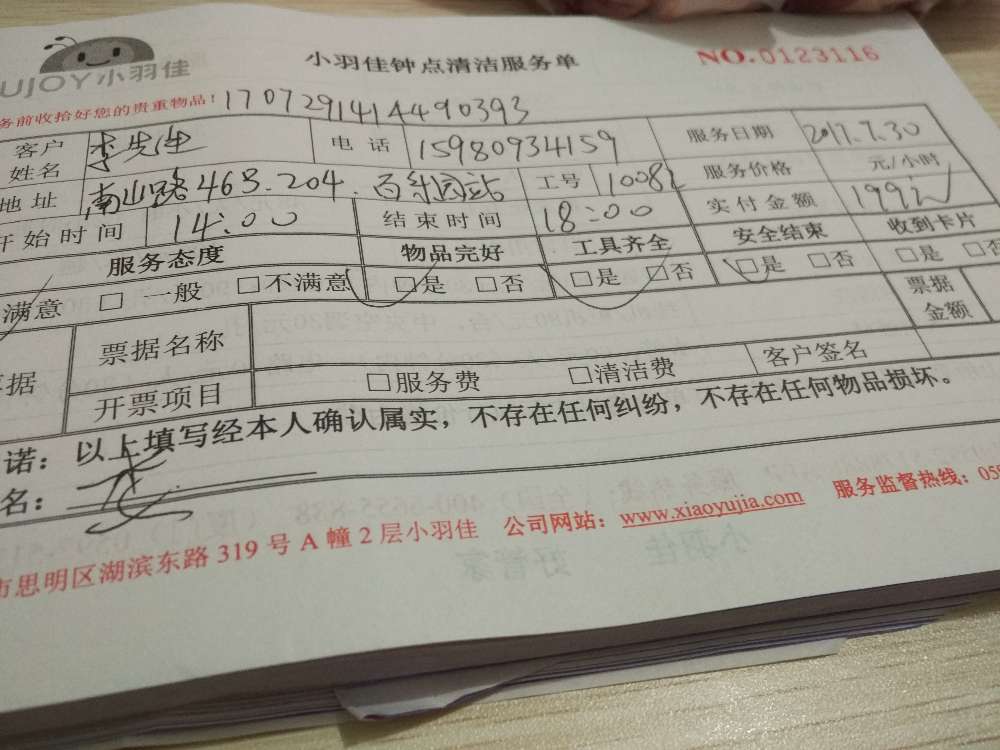 UJOY小羽佳
小羽佳钟点清洁服务单
NO.0123116
务前收拾好您的贵重物品! 17072914144490393
客户姓名 李先生 电话 15980934159 服务日期 2017.7.30
地址 南山路463.204. 工号 10082 服务价格 元/小时
开始时间 14:00 结束时间 18:00 实付金额 199
服务态度 物品完好 工具齐全 安全结束 收到卡片
满意 □一般 □不满意 □是 □否 □是 □否 □是 □否 □是 □否
据 票据名称 票据金额
开票项目 □服务费 □清洁费 客户签名
诺:以上填写经本人确认属实,不存在任何纠纷,不存在任何物品损坏。
名:
市思明区湖滨东路319号A幢2层小羽佳 公司网站:www.xiaoyujia.com 服务监督热线:059